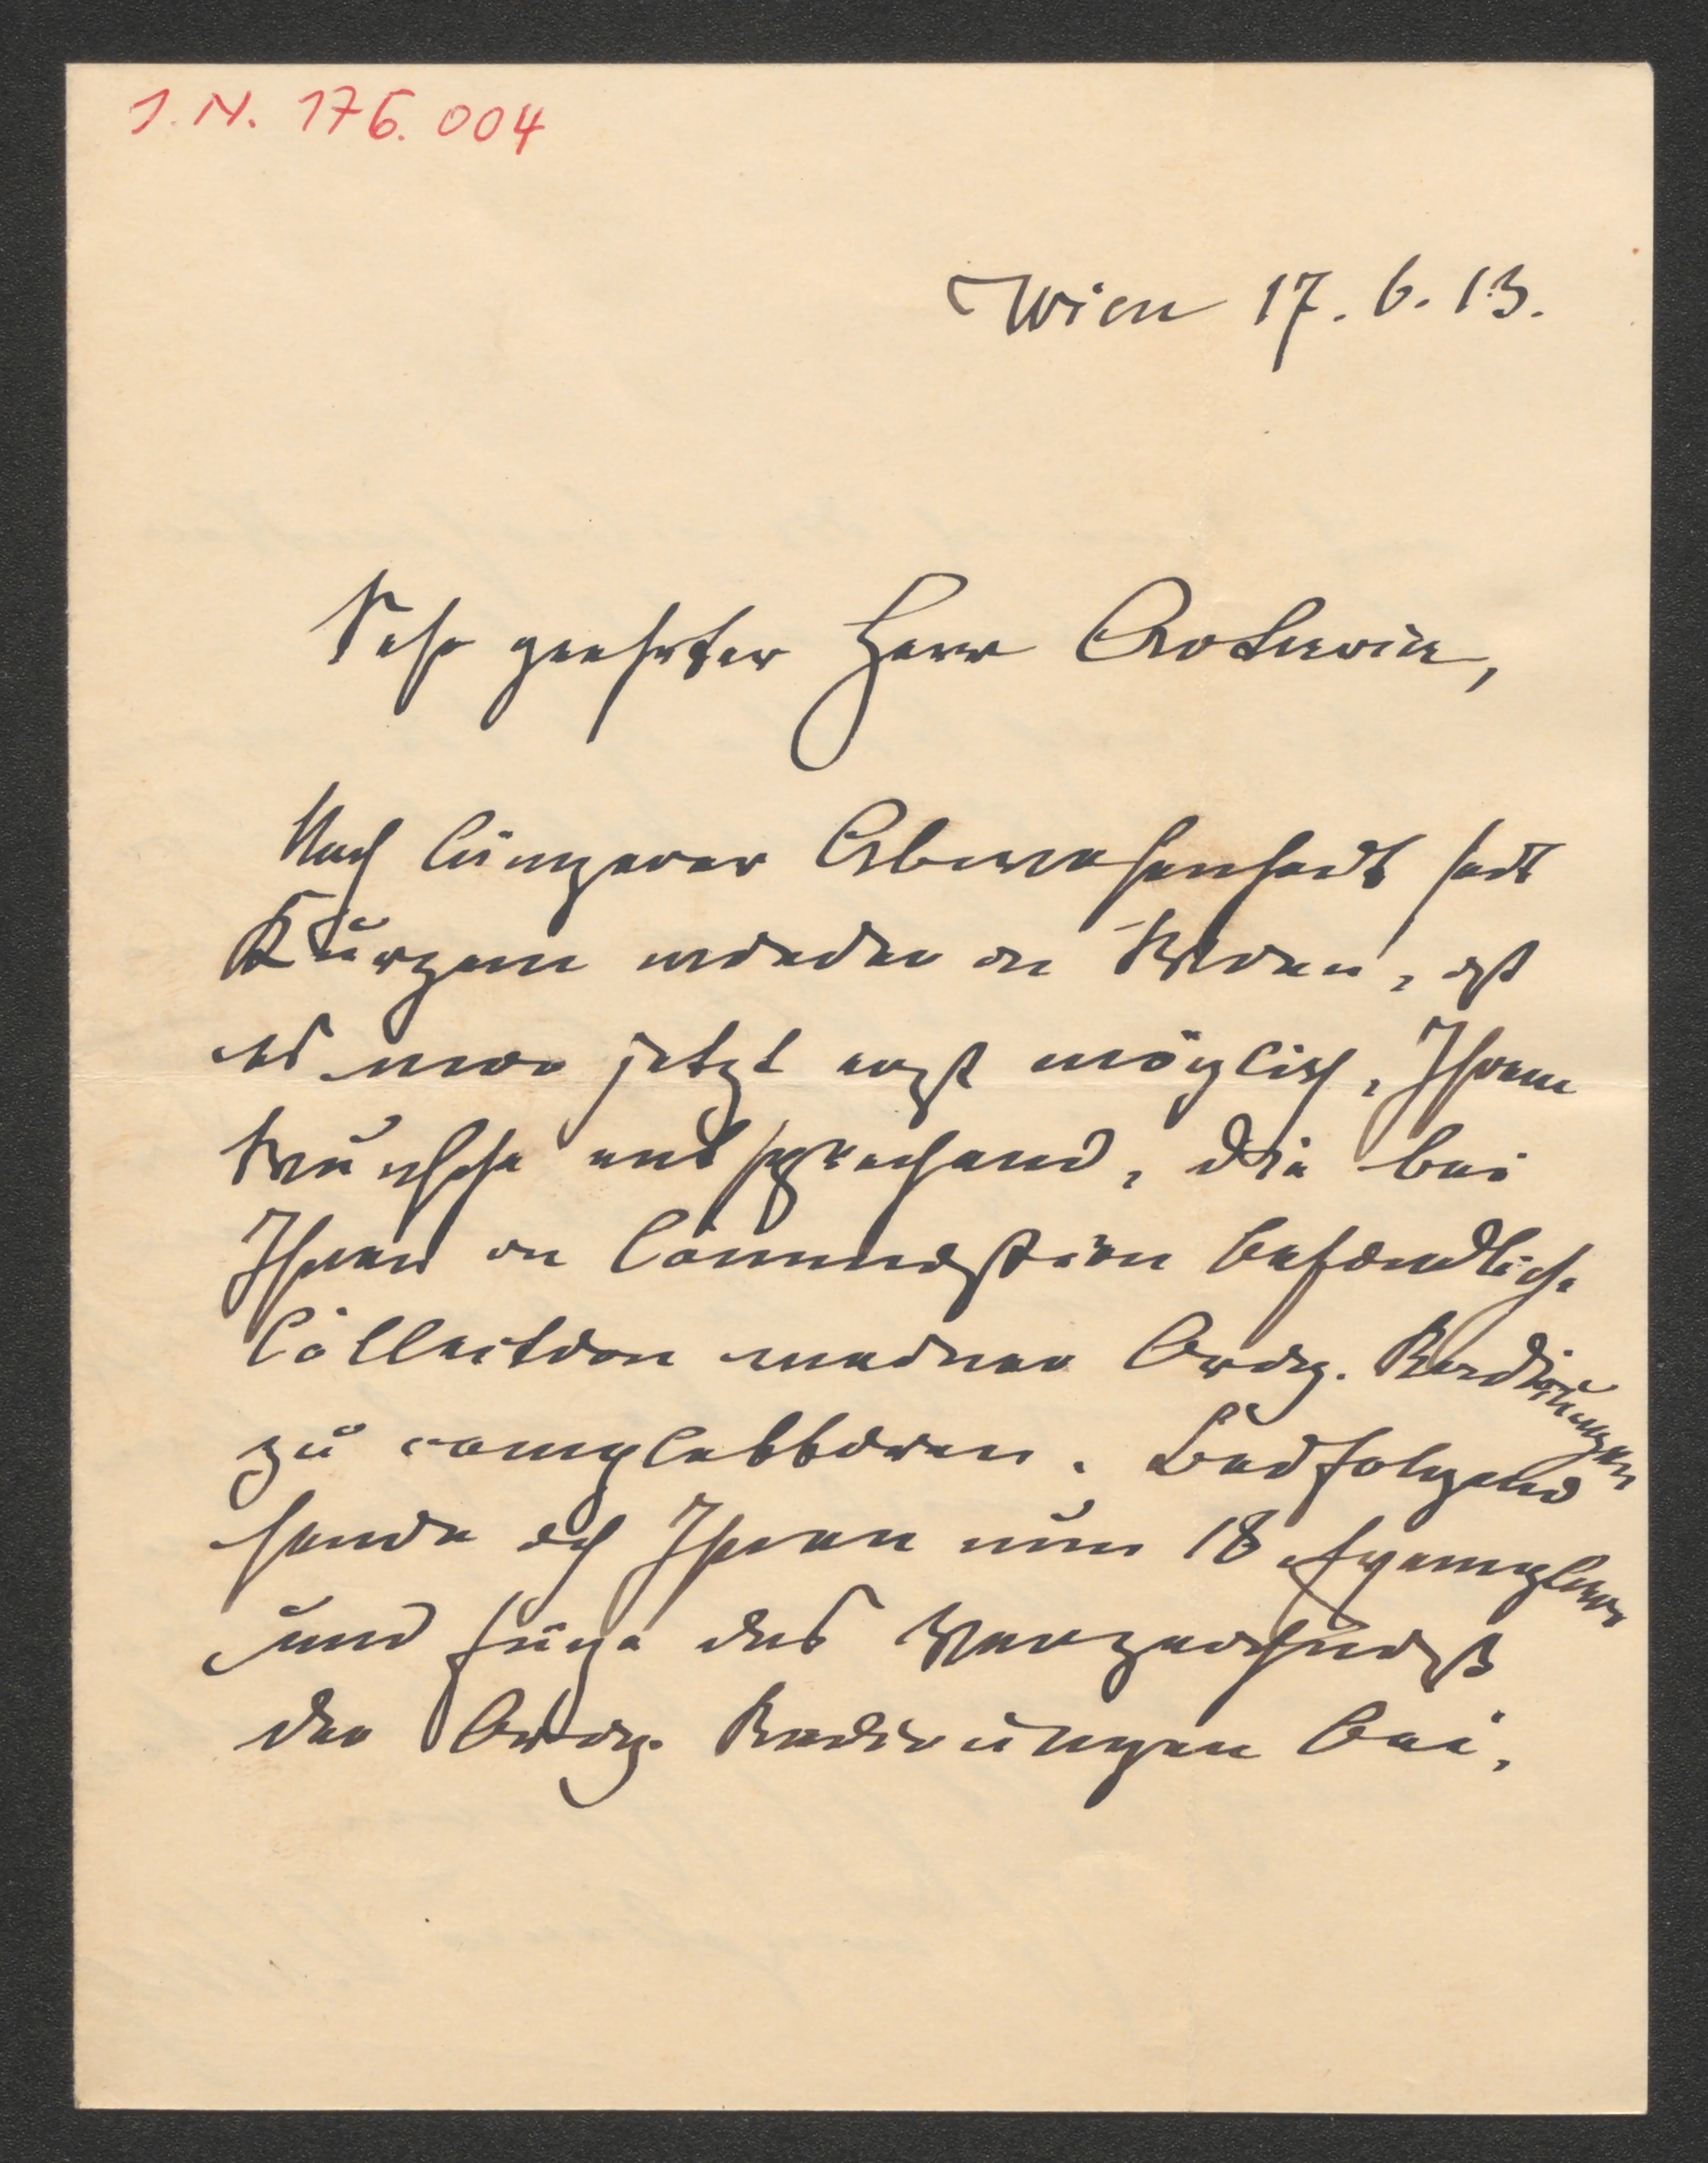 J. N. 176.004
Wien 17. 6. 13.
Sehr geehrter Herr Artwin,
Nach längerer Abwesenheit seit
Kurzem wieder in Wien, ist
es mir jetzt erst möglich, Ihrem
Wunsche entsprechend, die bei
Ihnen in Commission befindliche
Collection meiner Orig. Radirungen
zu complettiren. Beifolgend
sende ich Ihnen nun 18 Exemplare
und füge das Verzeichniß
der Orig. Radirungen bei,